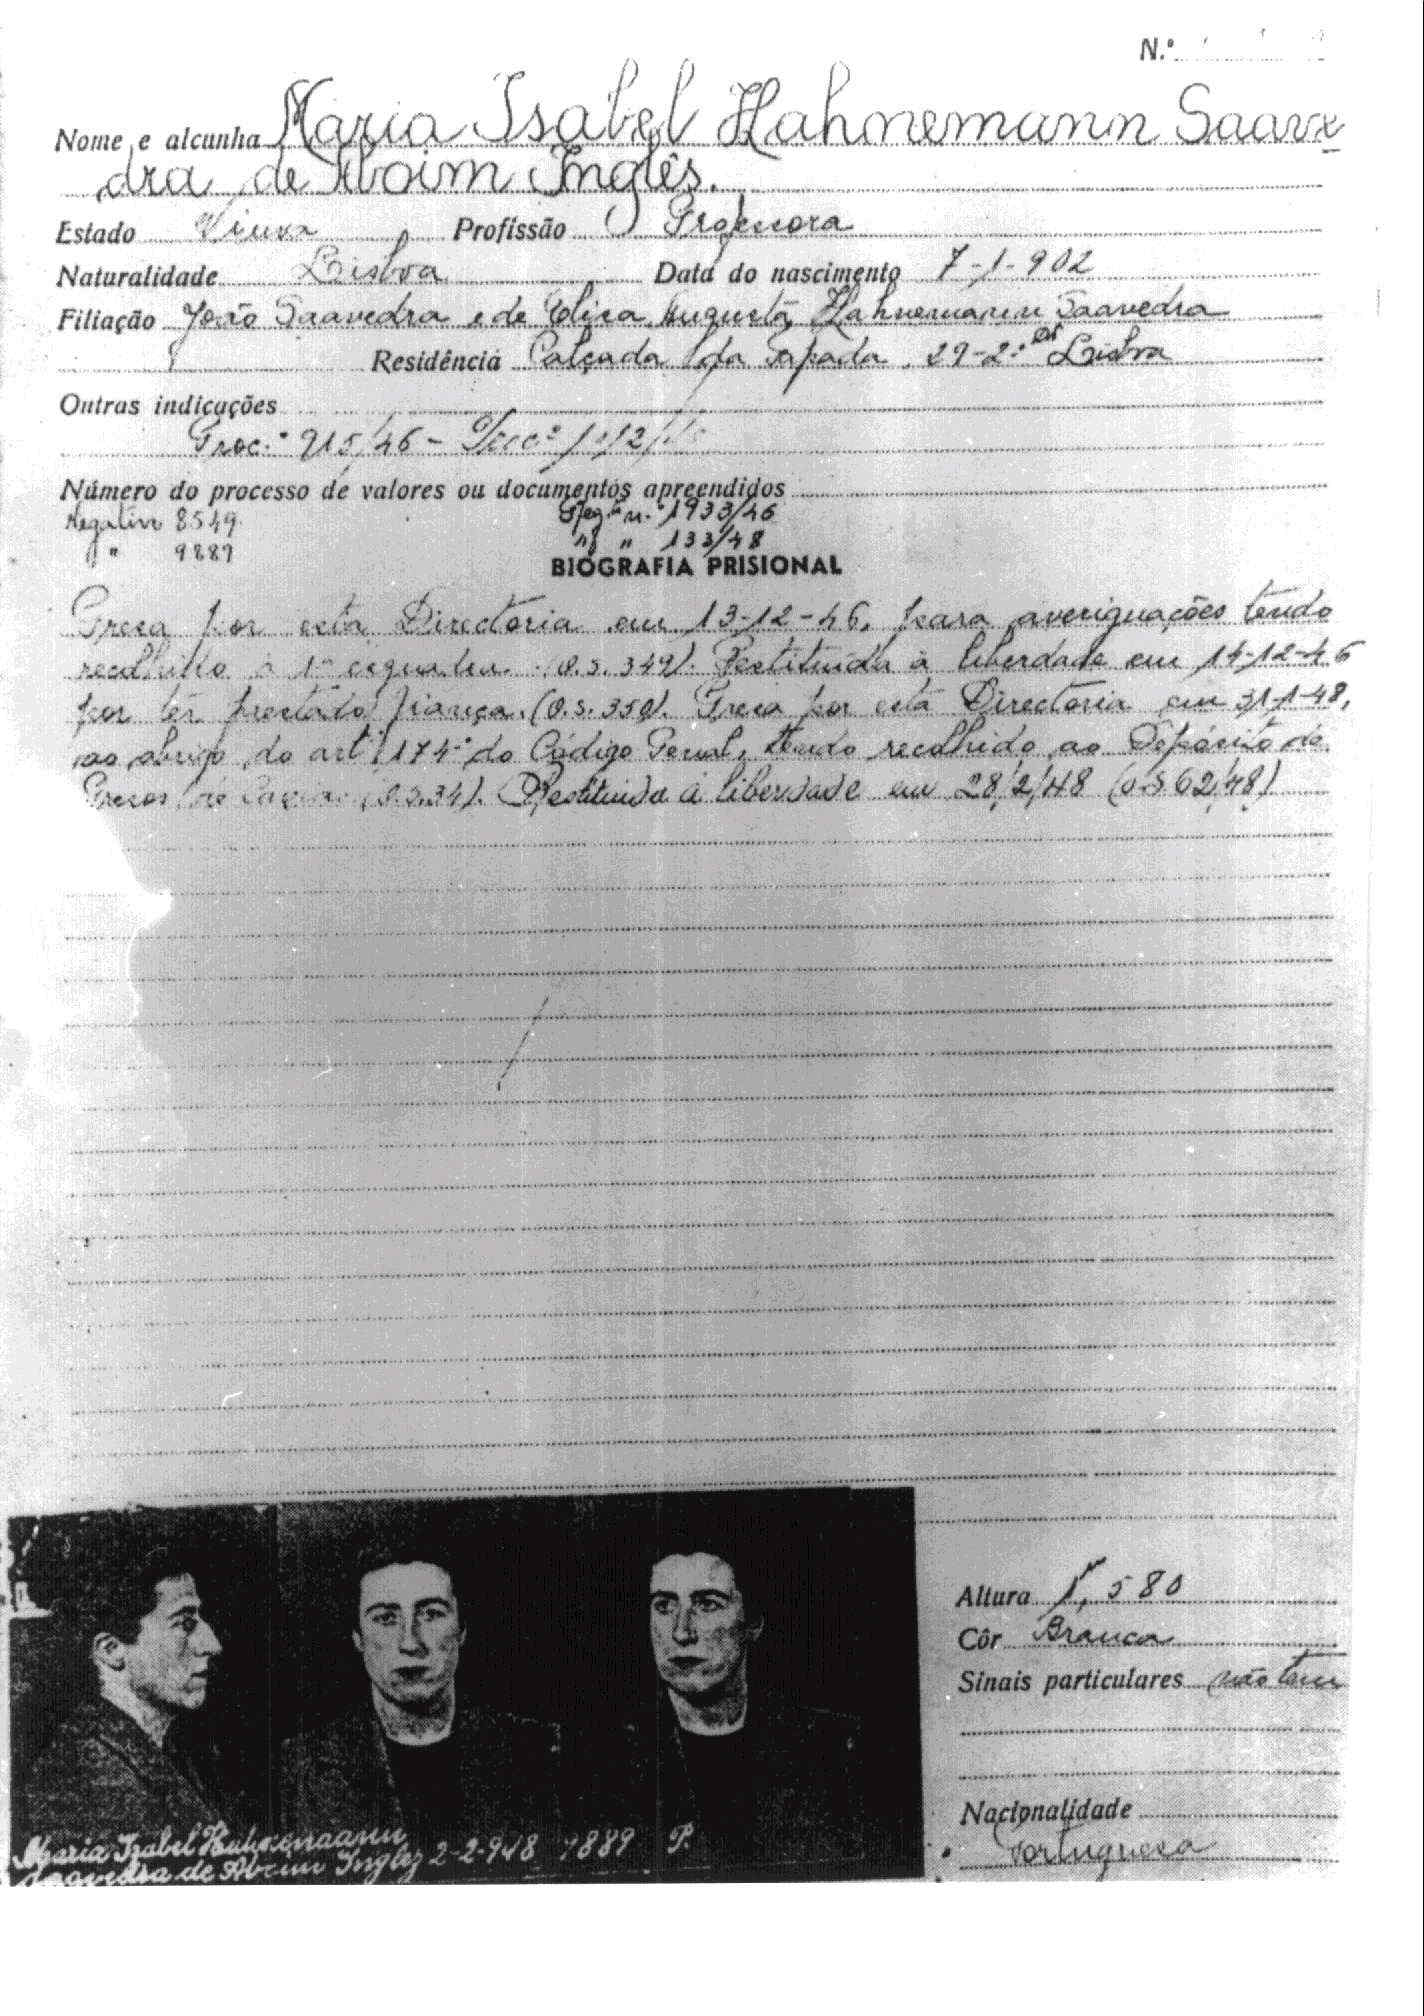 N.º
Nome e alcunha Maria Isabel Hahnemann Saave
dra de Aboim Inglês.
Estado Viuva Profissão Professora
Naturalidade Lisboa Data do nascimento 7-1-902
Filiação João Saavedra e de Elisa Augusta Hahnemann Saavedra
Residência Calçada da Tapada, 29-2.º Dt Lisboa
Outras indicações
Proc.º 915/46 -
Número do processo de valores ou documentos apreendidos
Negativo 8549 Reg.to n.º 1933/46
" 9889 " " 133/48
BIOGRAFIA PRISIONAL
Presa por esta Directoria em 13-12-46, para averiguações tendo
recolhido à 1ª esquadra (O.S. 349). Restituída à liberdade em 14-12-46
por ter prestado fiança. (O.S. 350). Presa por esta Directoria em 31-1-48,
ao abrigo do artº 174.º do Código Penal, tendo recolhido ao Depósito de
Presos de (O.S.34). Restituida à liberdade em 28/2/48 (O.S.62/48)
Altura 1,m580
Côr Branca
Sinais particulares não tem
Nacionalidade
Portuguesa
Maria Izabel Hahnemann
Saavedra de Aboim Inglez 2-2-948 9889 P.